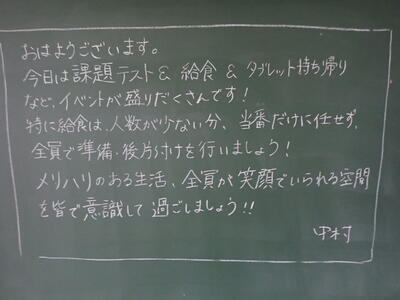 おはようございます。
今日は課題テスト & 給食 & タブレット持ち帰り
など、イベントが盛りだくさんです！
特に給食は、人数が少ない分、当番だけに任せず、
全員で準備・後片付けを行いましょう！
メリハリのある生活、全員が笑顔でいられる空間
を皆で意識して過ごしましょう!!
中村